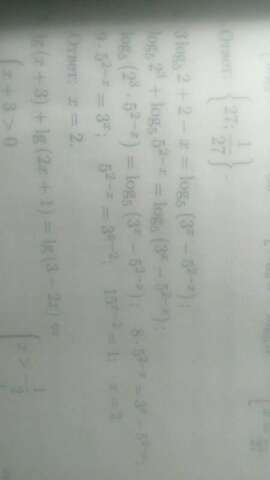 Ответ: { 27; 1/27 }.
3 log₅ 2 + 2 − x = log₅ (3ˣ − 5²⁻ˣ);
log₅ 2³ + log₅ 5²⁻ˣ = log₅ (3ˣ − 5²⁻ˣ);
log₅ (2³ · 5²⁻ˣ) = log₅ (3ˣ − 5²⁻ˣ); 8 · 5²⁻ˣ = 3ˣ − 5²⁻ˣ;
9 · 5²⁻ˣ = 3ˣ; 5²⁻ˣ = 3ˣ⁻²; 15ˣ⁻² = 1; x = 2
Ответ: x = 2.
lg(x + 3) + lg(2x + 1) = lg(3 − 2x)
{ x + 3 > 0
{ x > − 1/2